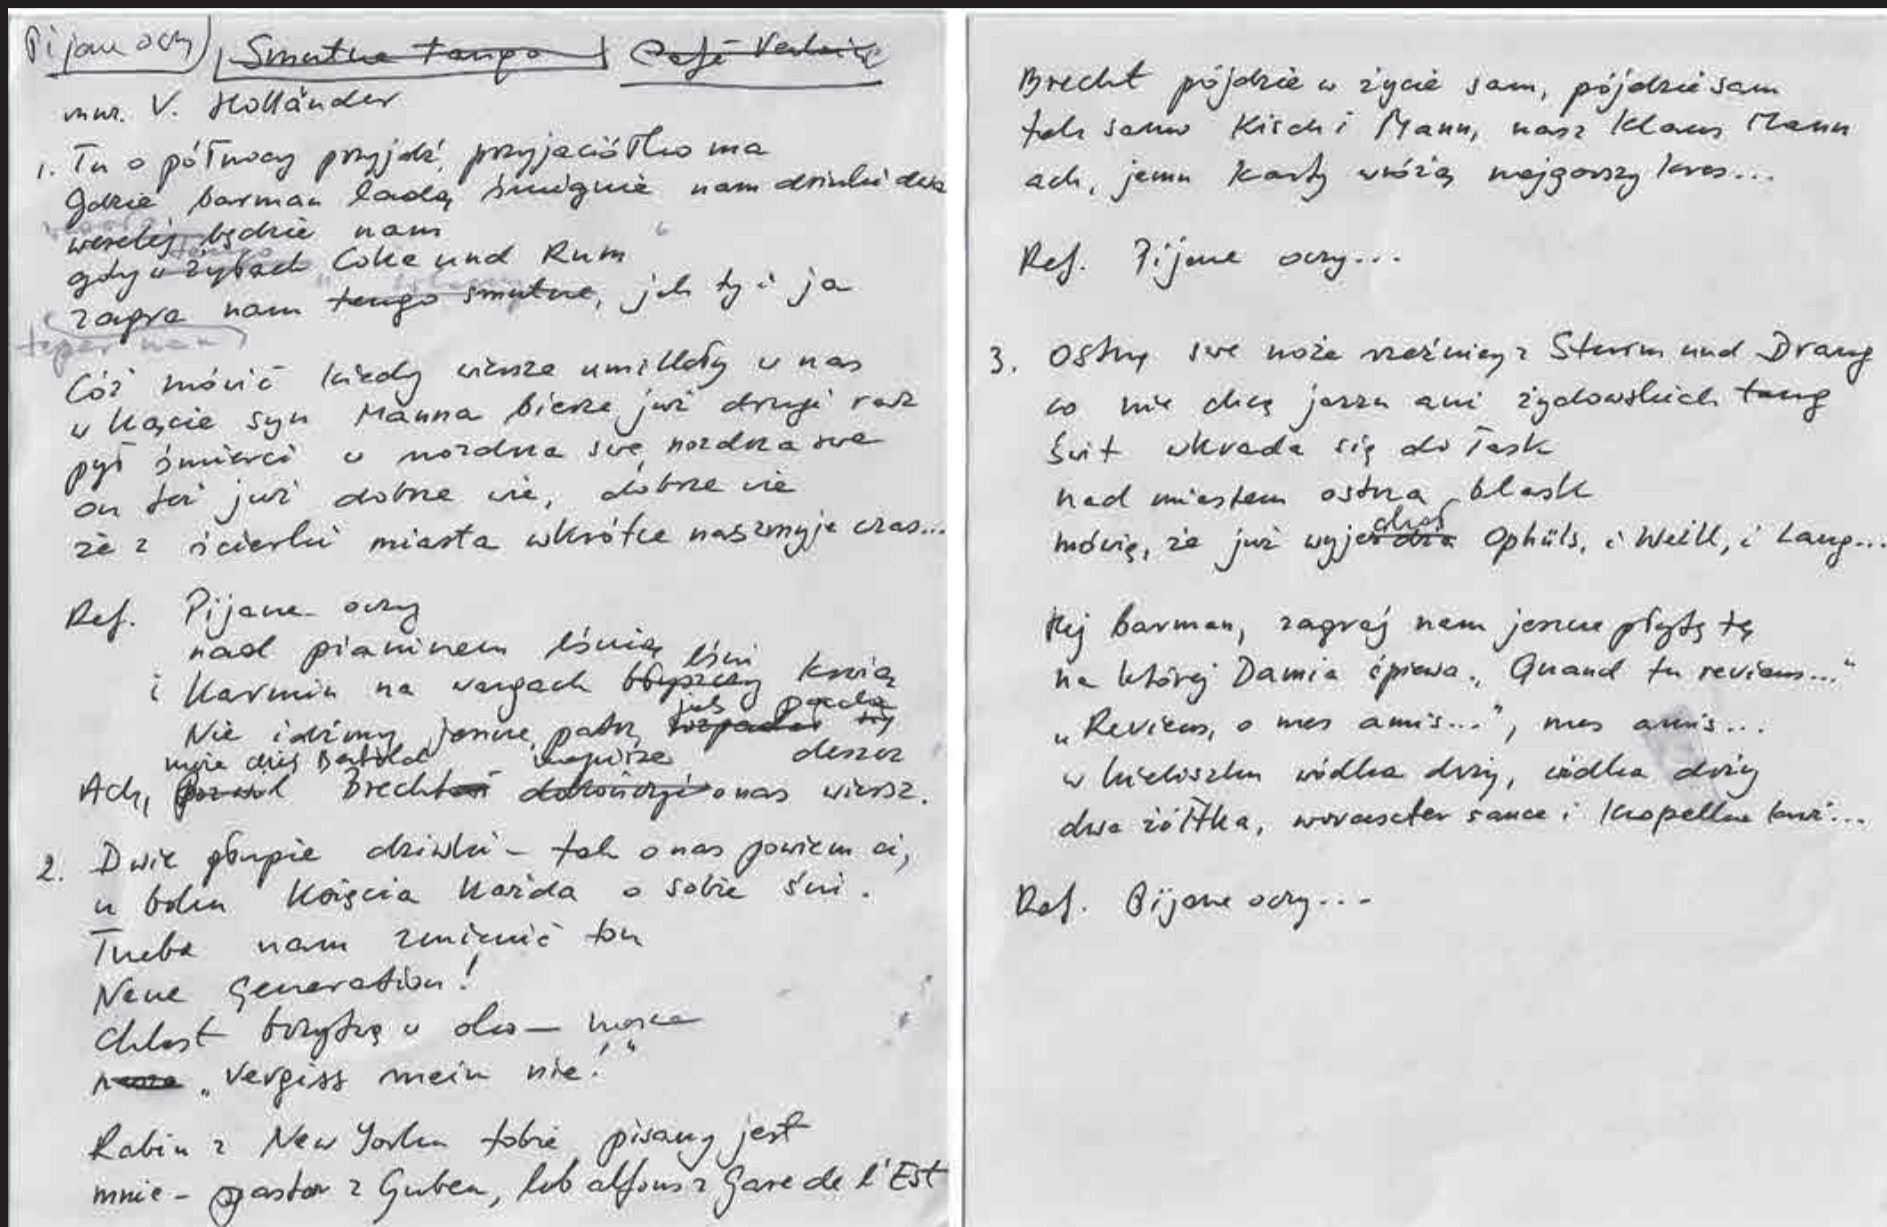 Pijane oczy Smutne tango Café
muz. V. Holländer
1. Tu o północy przyjdź, przyjaciółko ma
Gdzie barman ladą śmignie nam drinki dwa
weselej będzie nam
gdy w żyłach Coke und Rum
zagra nam tango smutne, jak ty i ja
taper nam
Cóż mówić kiedy wiersze umilkły w nas
w kącie syn Manna bierze już drugi raz
pył śmierci w nozdrza swe, nozdrza swe
on też już dobrze wie, dobrze wie
że z ścierki miasta wkrótce nas zmyje czas...
Ref. Pijane oczy
nad pianinem lśnią
i karmin na wargach błyszczy lśni krwią
Nie idźmy jeszcze, patrz, rozpadał się jak pada
deszcz
Ach, może dziś Bertold Brecht napisze dokończyć o nas wiersz.
2. Dwie głupie dziwki – tak o nas powiem ci,
u boku księcia każda o sobie śni.
Trzeba nam zmienić ton
Neue Generation!
Chlast brzytwą w oko – nasze
nasze „Vergiss mein nie!"
Rabin z New Yorku tobie pisany jest
mnie – pastor z Guben, lub alfons z Gare de l'Est
Brecht pójdzie w życie sam, pójdzie sam
tak samo Kisch i Mann, nasz Klaus Mann
ach, jemu karty wróżą najgorszy kres...
Ref. Pijane oczy...
3. Ostrzą swe noże rzeźnicy z Sturm und Drang
co nie chcą jazzu ani żydowskich tang
Świt wkrada się do Task
nad miastem ostrza blask
mówią, że już wyjeżdża chał Ophüls, i Weill, i Lang...
Hej barman, zagraj nam jeszcze płytę tę
na której Damia śpiewa „Quand tu reviens..."
„Reviens, o mes amis...", mes amis...
w kieliszku wódka drży, wódka drży
dwa żółtka, worcester sauce i kropelka krwi...
Ref. Pijane oczy...